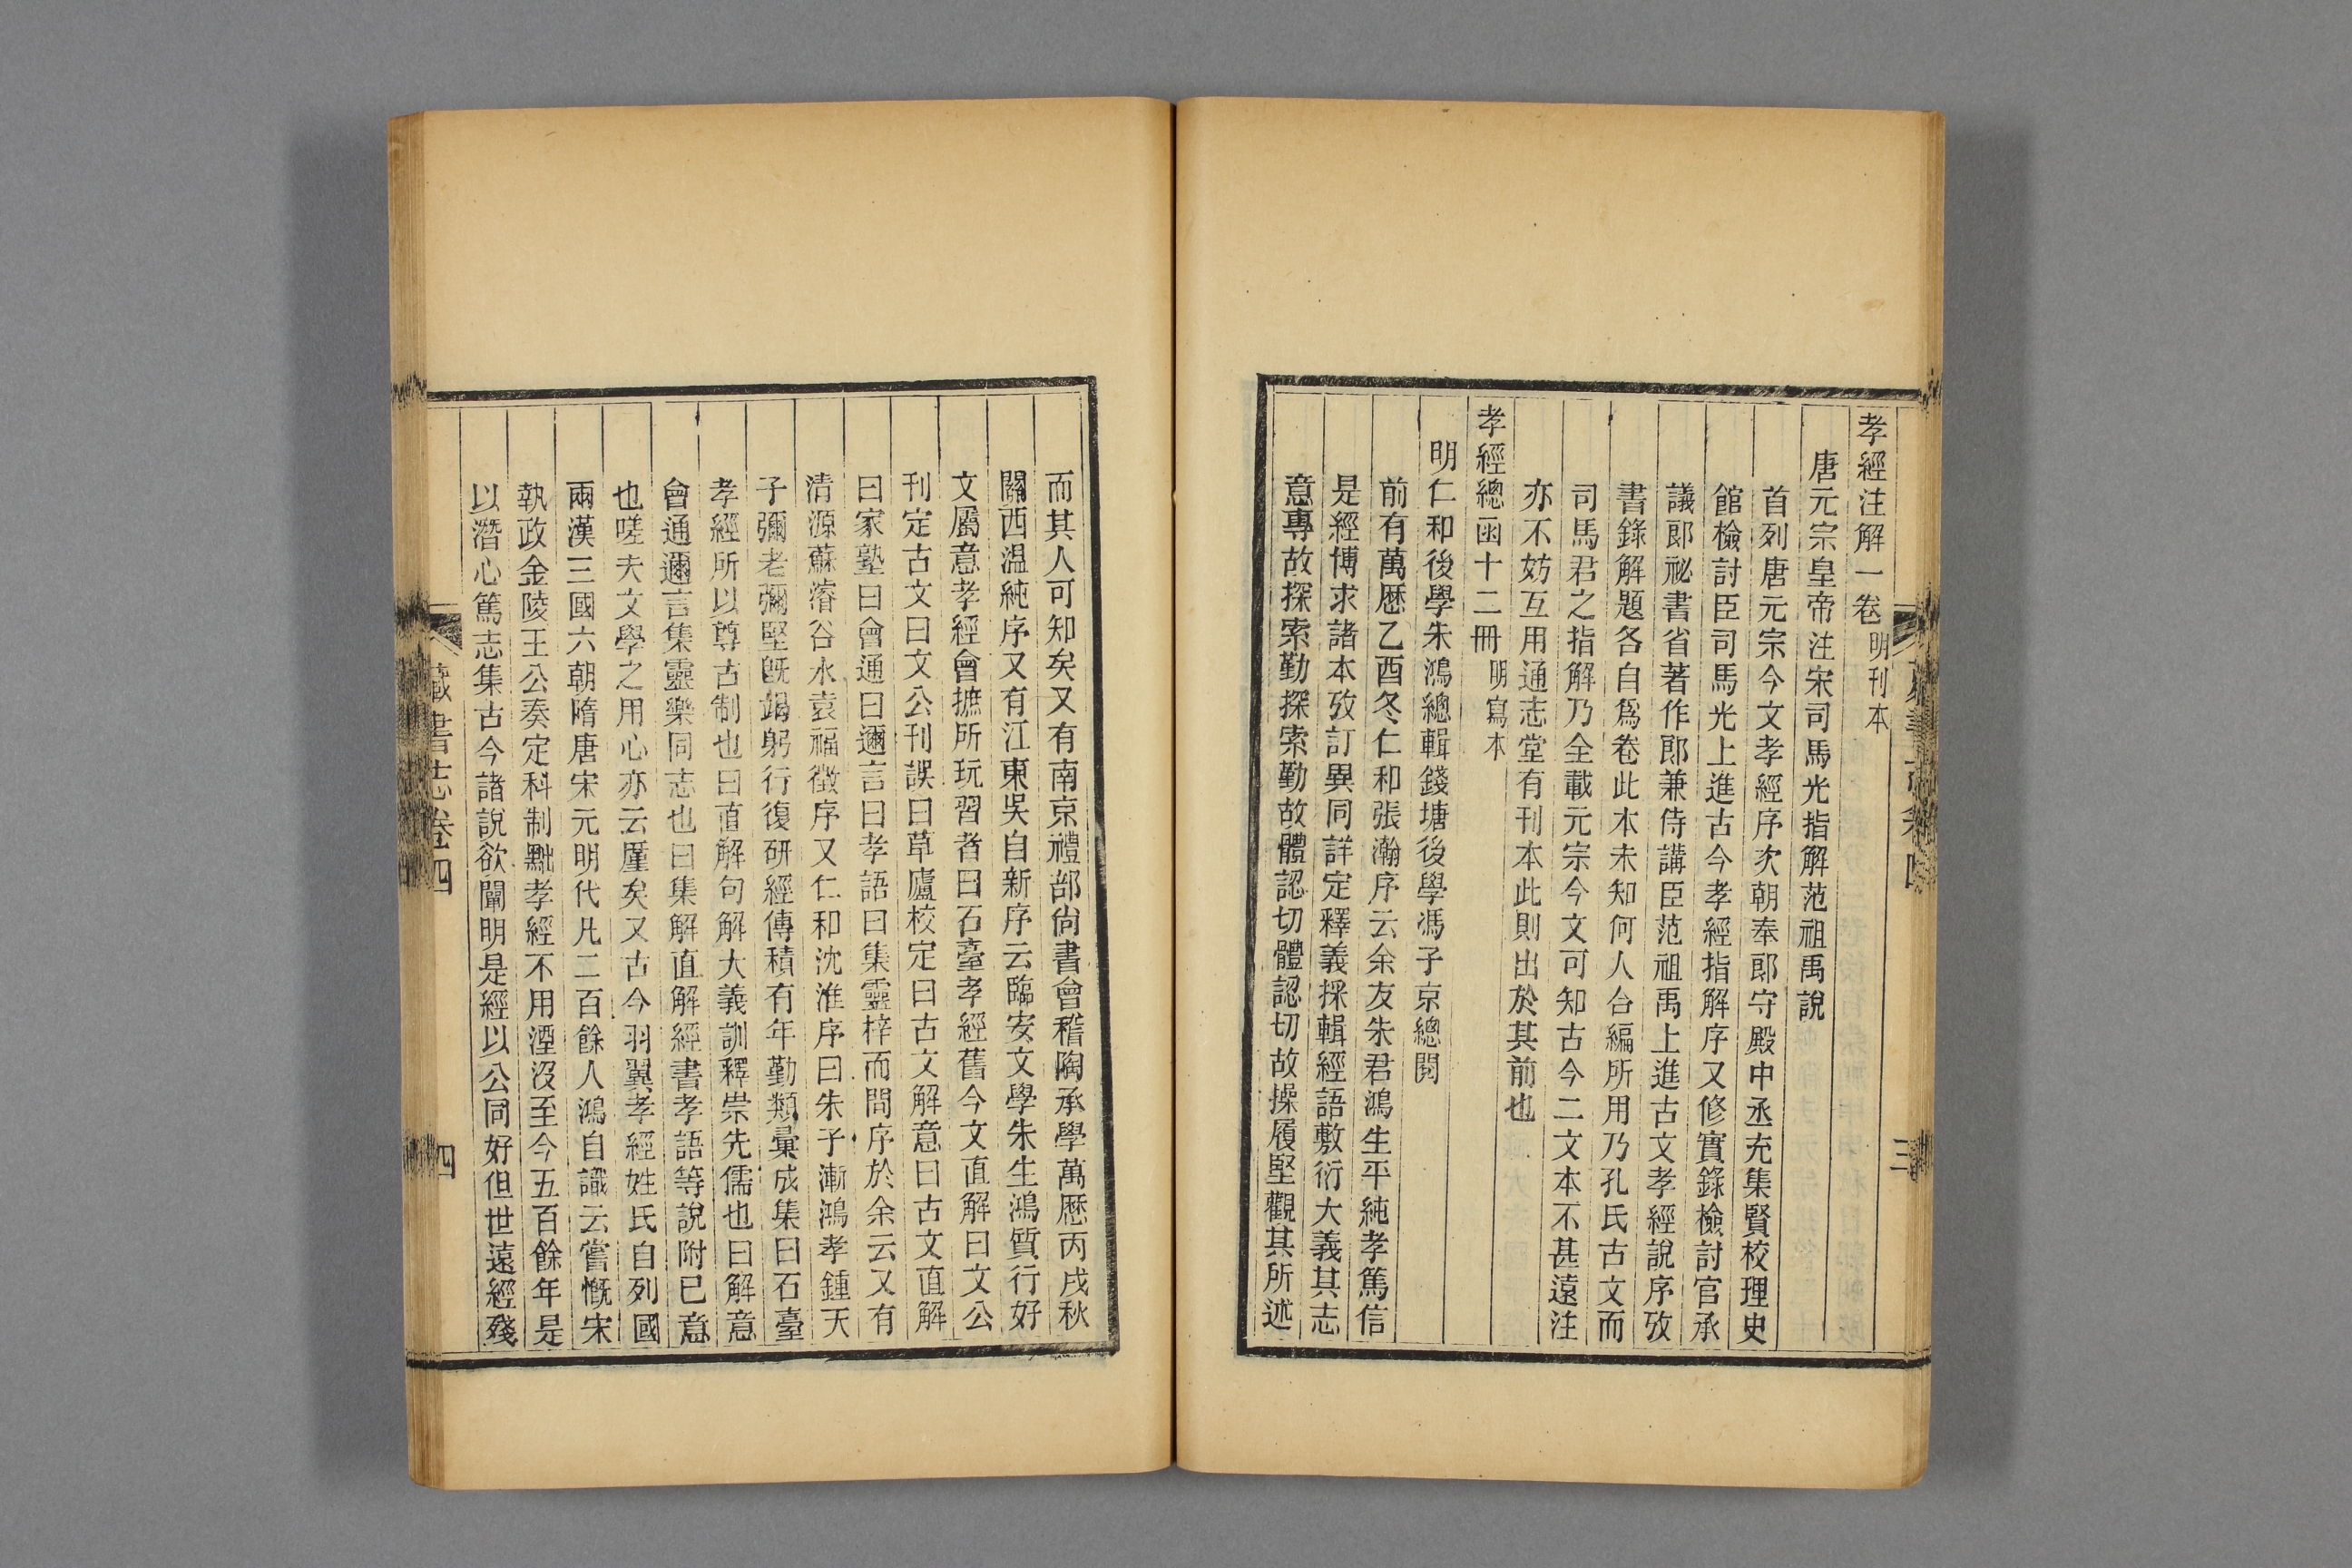 孝經注解一卷 明刊本
唐元宗皇帝注宋司馬光指解范祖禹說
首列唐元宗今文孝經序次朝奉郎守殿中丞充集賢校理史
館檢討臣司馬光上進古今孝經指解序又修實錄檢討官承
議郎祕書省著作郎兼侍講臣范祖禹上進古文孝經說序攷
書錄解題各自爲卷此本未知何人合編所用乃孔氏古文而
司馬君之指解乃全載元宗今文可知古今二文本不甚遠注
亦不妨互用通志堂有刊本此則出於其前也
孝經總函十二冊 明寫本
明仁和後學朱鴻總輯錢塘後學馮子京總閱
前有萬厯乙酉冬仁和張瀚序云余友朱君鴻生平純孝篤信
是經博求諸本攷訂異同詳定釋義採輯經語敷衍大義其志
意專故探索勤探索勤故體認切體認切故操履堅觀其所述
而其人可知矣又有南京禮部尙書會稽陶承學萬厯丙戌秋
關西溫純序又有江東吳自新序云臨安文學朱生鴻質行好
文屬意孝經會摭所玩習者曰石臺孝經舊今文直解曰文公
刊定古文曰文公刊誤曰草廬校定曰古文解意曰古文直解
曰家塾曰會通曰邇言曰孝語曰集靈梓而問序於余云又有
清源蘇濬谷水袁福徵序又仁和沈淮序曰朱子漸鴻孝鍾天
子彌老彌堅旣竭躬行復研經傳積有年勤類彙成集曰石臺
孝經所以尊古制也曰直解句解大義訓釋崇先儒也曰解意
會通邇言集靈樂同志也曰集解直解經書孝語等說附已意
也嗟夫文學之用心亦云厪矣又古今羽翼孝經姓氏自列國
兩漢三國六朝隋唐宋元明代凡二百餘人鴻自識云嘗慨宋
執政金陵王公奏定科制黜孝經不用湮沒至今五百餘年是
以潛心篤志集古今諸說欲闡明是經以公同好但世遠經殘
藏書志卷四
四